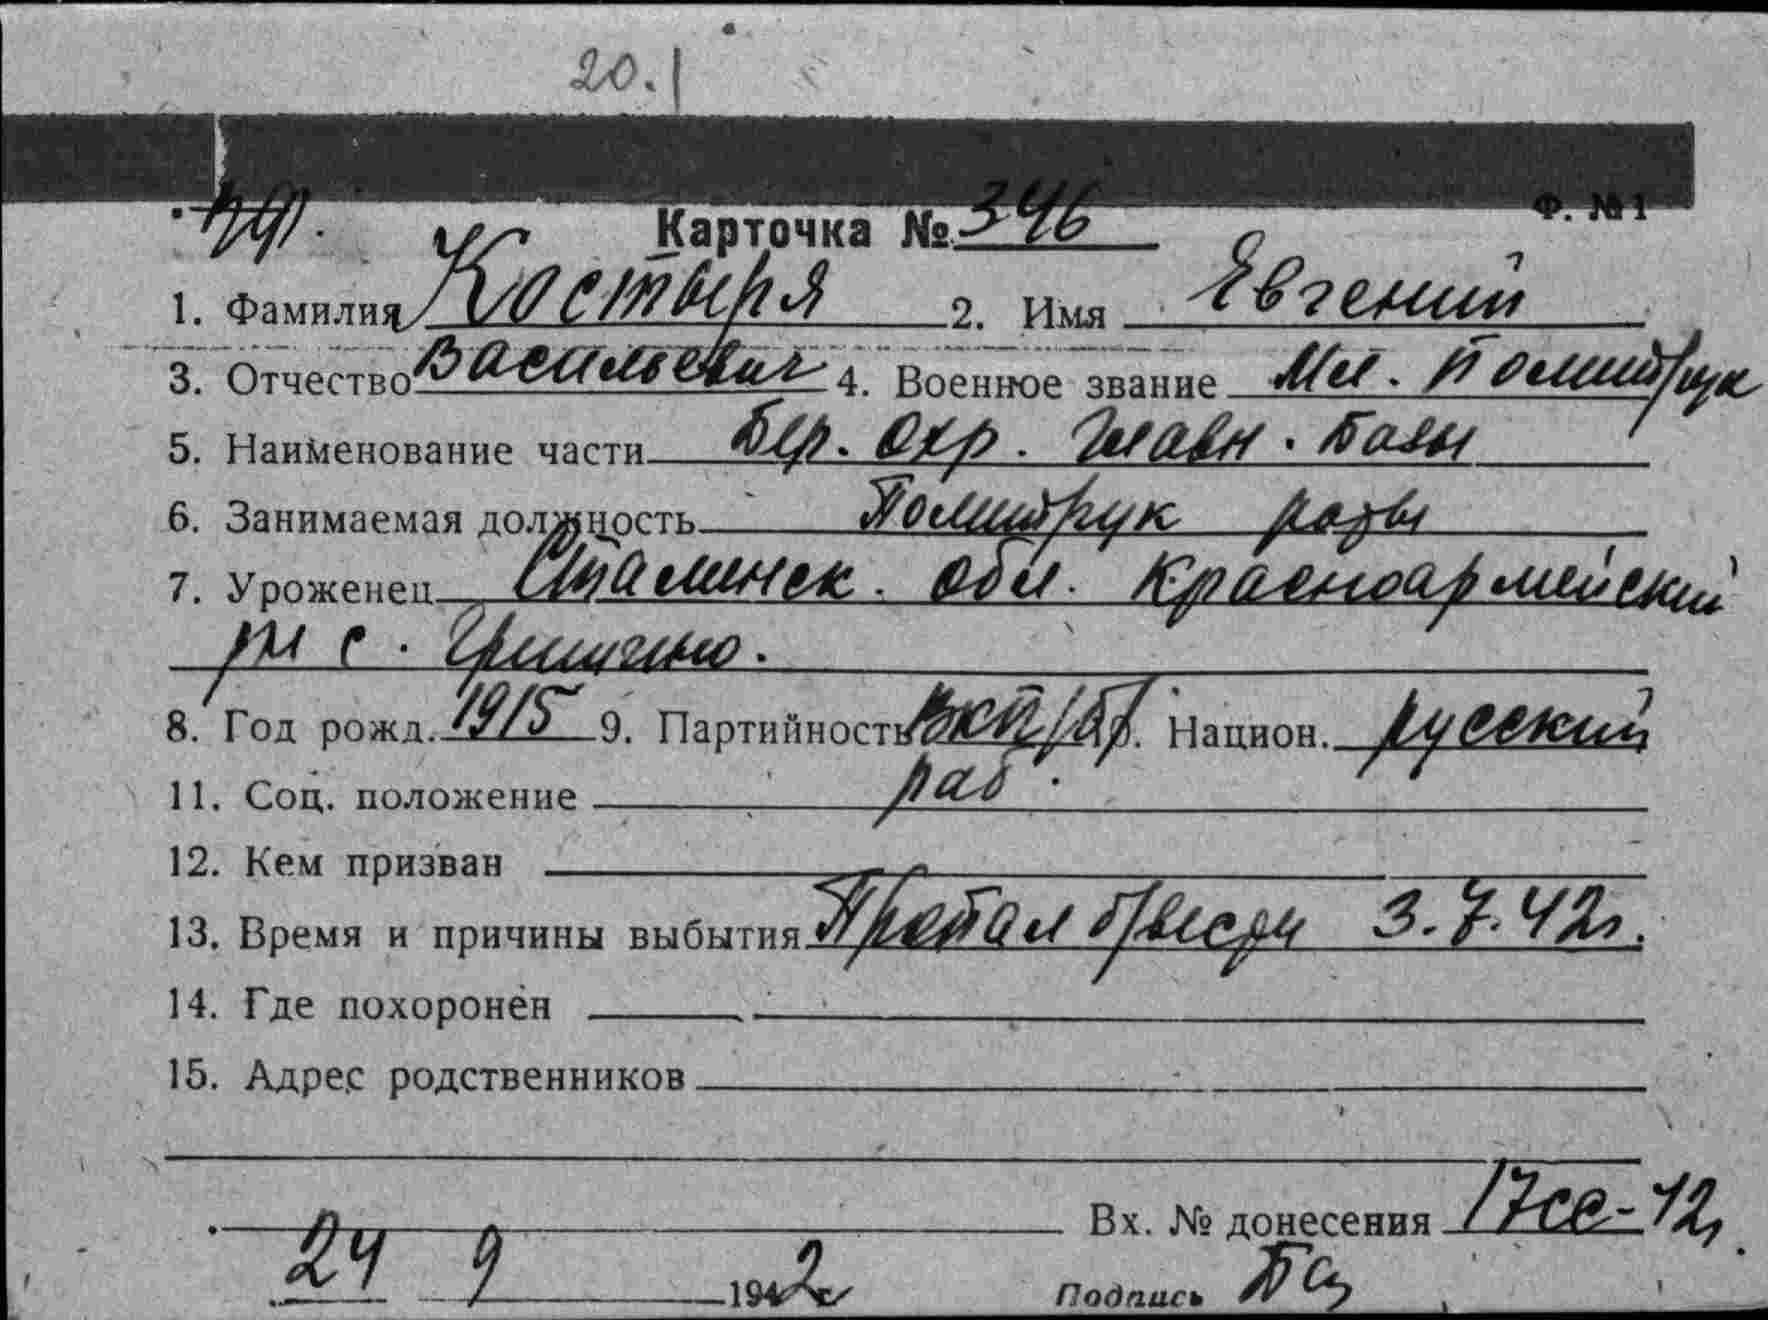 20.1
Ф. №1
Карточка № 346
1. Фамилия Костыря 2. Имя Евгений
3. Отчество Васильевич 4. Военное звание Мл. Политрук
5. Наименование части Бер. Охр. Главн. Базы
6. Занимаемая должность Политрук роты
7. Уроженец Сталинск. обл. Красноармейский
рн с. Гришино.
8. Год рожд. 1915 9. Партийность ВКП/б/. Национ. русский
11. Соц. положение раб.
12. Кем призван
13. Время и причины выбытия Пропал б/вести 3.7.42г.
14. Где похоронен
15. Адрес родственников
Вх. № донесения 17сс-42
24 9 1942 г. Подпись